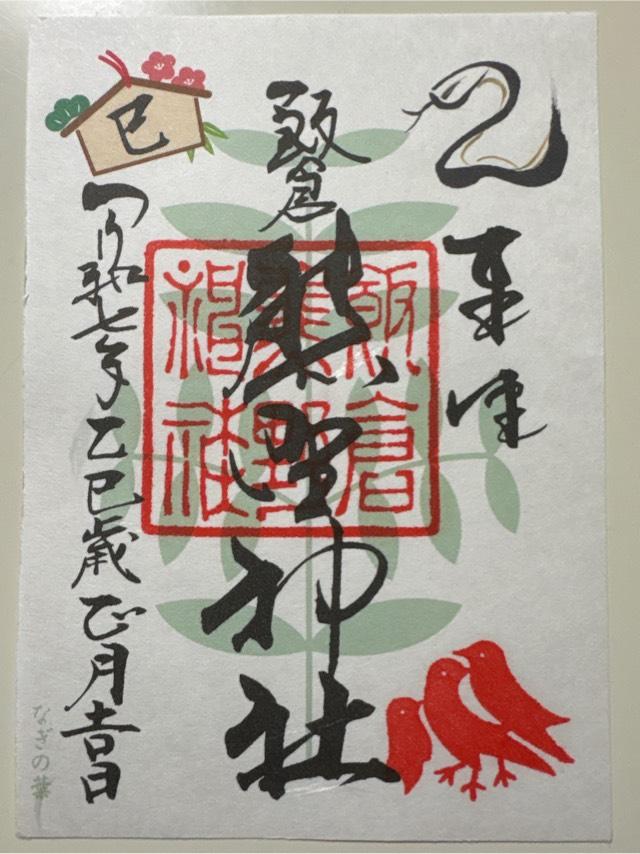 奉拝
飯倉
熊野神社
飯倉
熊野
神社
巳
令和七年乙巳歳正月吉日
なぎの葉